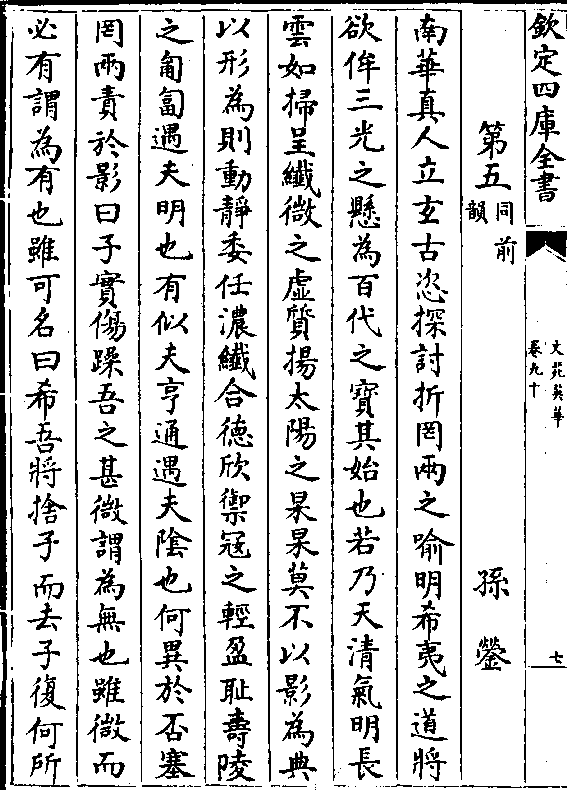 欽定四庫全書
文苑英華
卷九十
七
第五 同前韻 孫鎣
南華真人立玄古恣探討折罔兩之喻明希夷之道將
欲侔三光之懸為百代之寶其始也若乃天清氣明長
雲如掃呈纖微之虛質揚太陽之杲杲莫不以影為典
以形為則動靜委任濃纖合德欣禦冦之輕盈耻壽陵
之匍匐遇夫明也有似夫亨通遇夫陰也何異於否塞
罔兩責於影曰子實傷躁吾之甚微謂為無也雖微而
必有謂為有也雖可名曰希吾將捨子而去子復何所